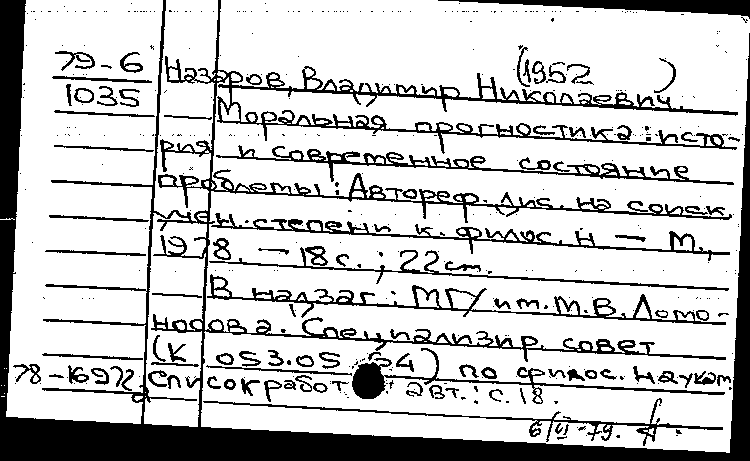 79-6
1035
(1952 )
Назаров, Владимир Николаевич.
Моральная прогностика: исто-
рия и современное состояние
проблемы: Автореф. дис. на соиск.
учен. степени к. филос. н — М.,
1978. — 18 с.; 22 см.
В надзаг.: МГУ им. М.В. Ломо-
носова. Специализир. совет
(К 053.05.54) по филос. наукам
78-16972д Список работ авт.: с. 18.
6/VI-79.